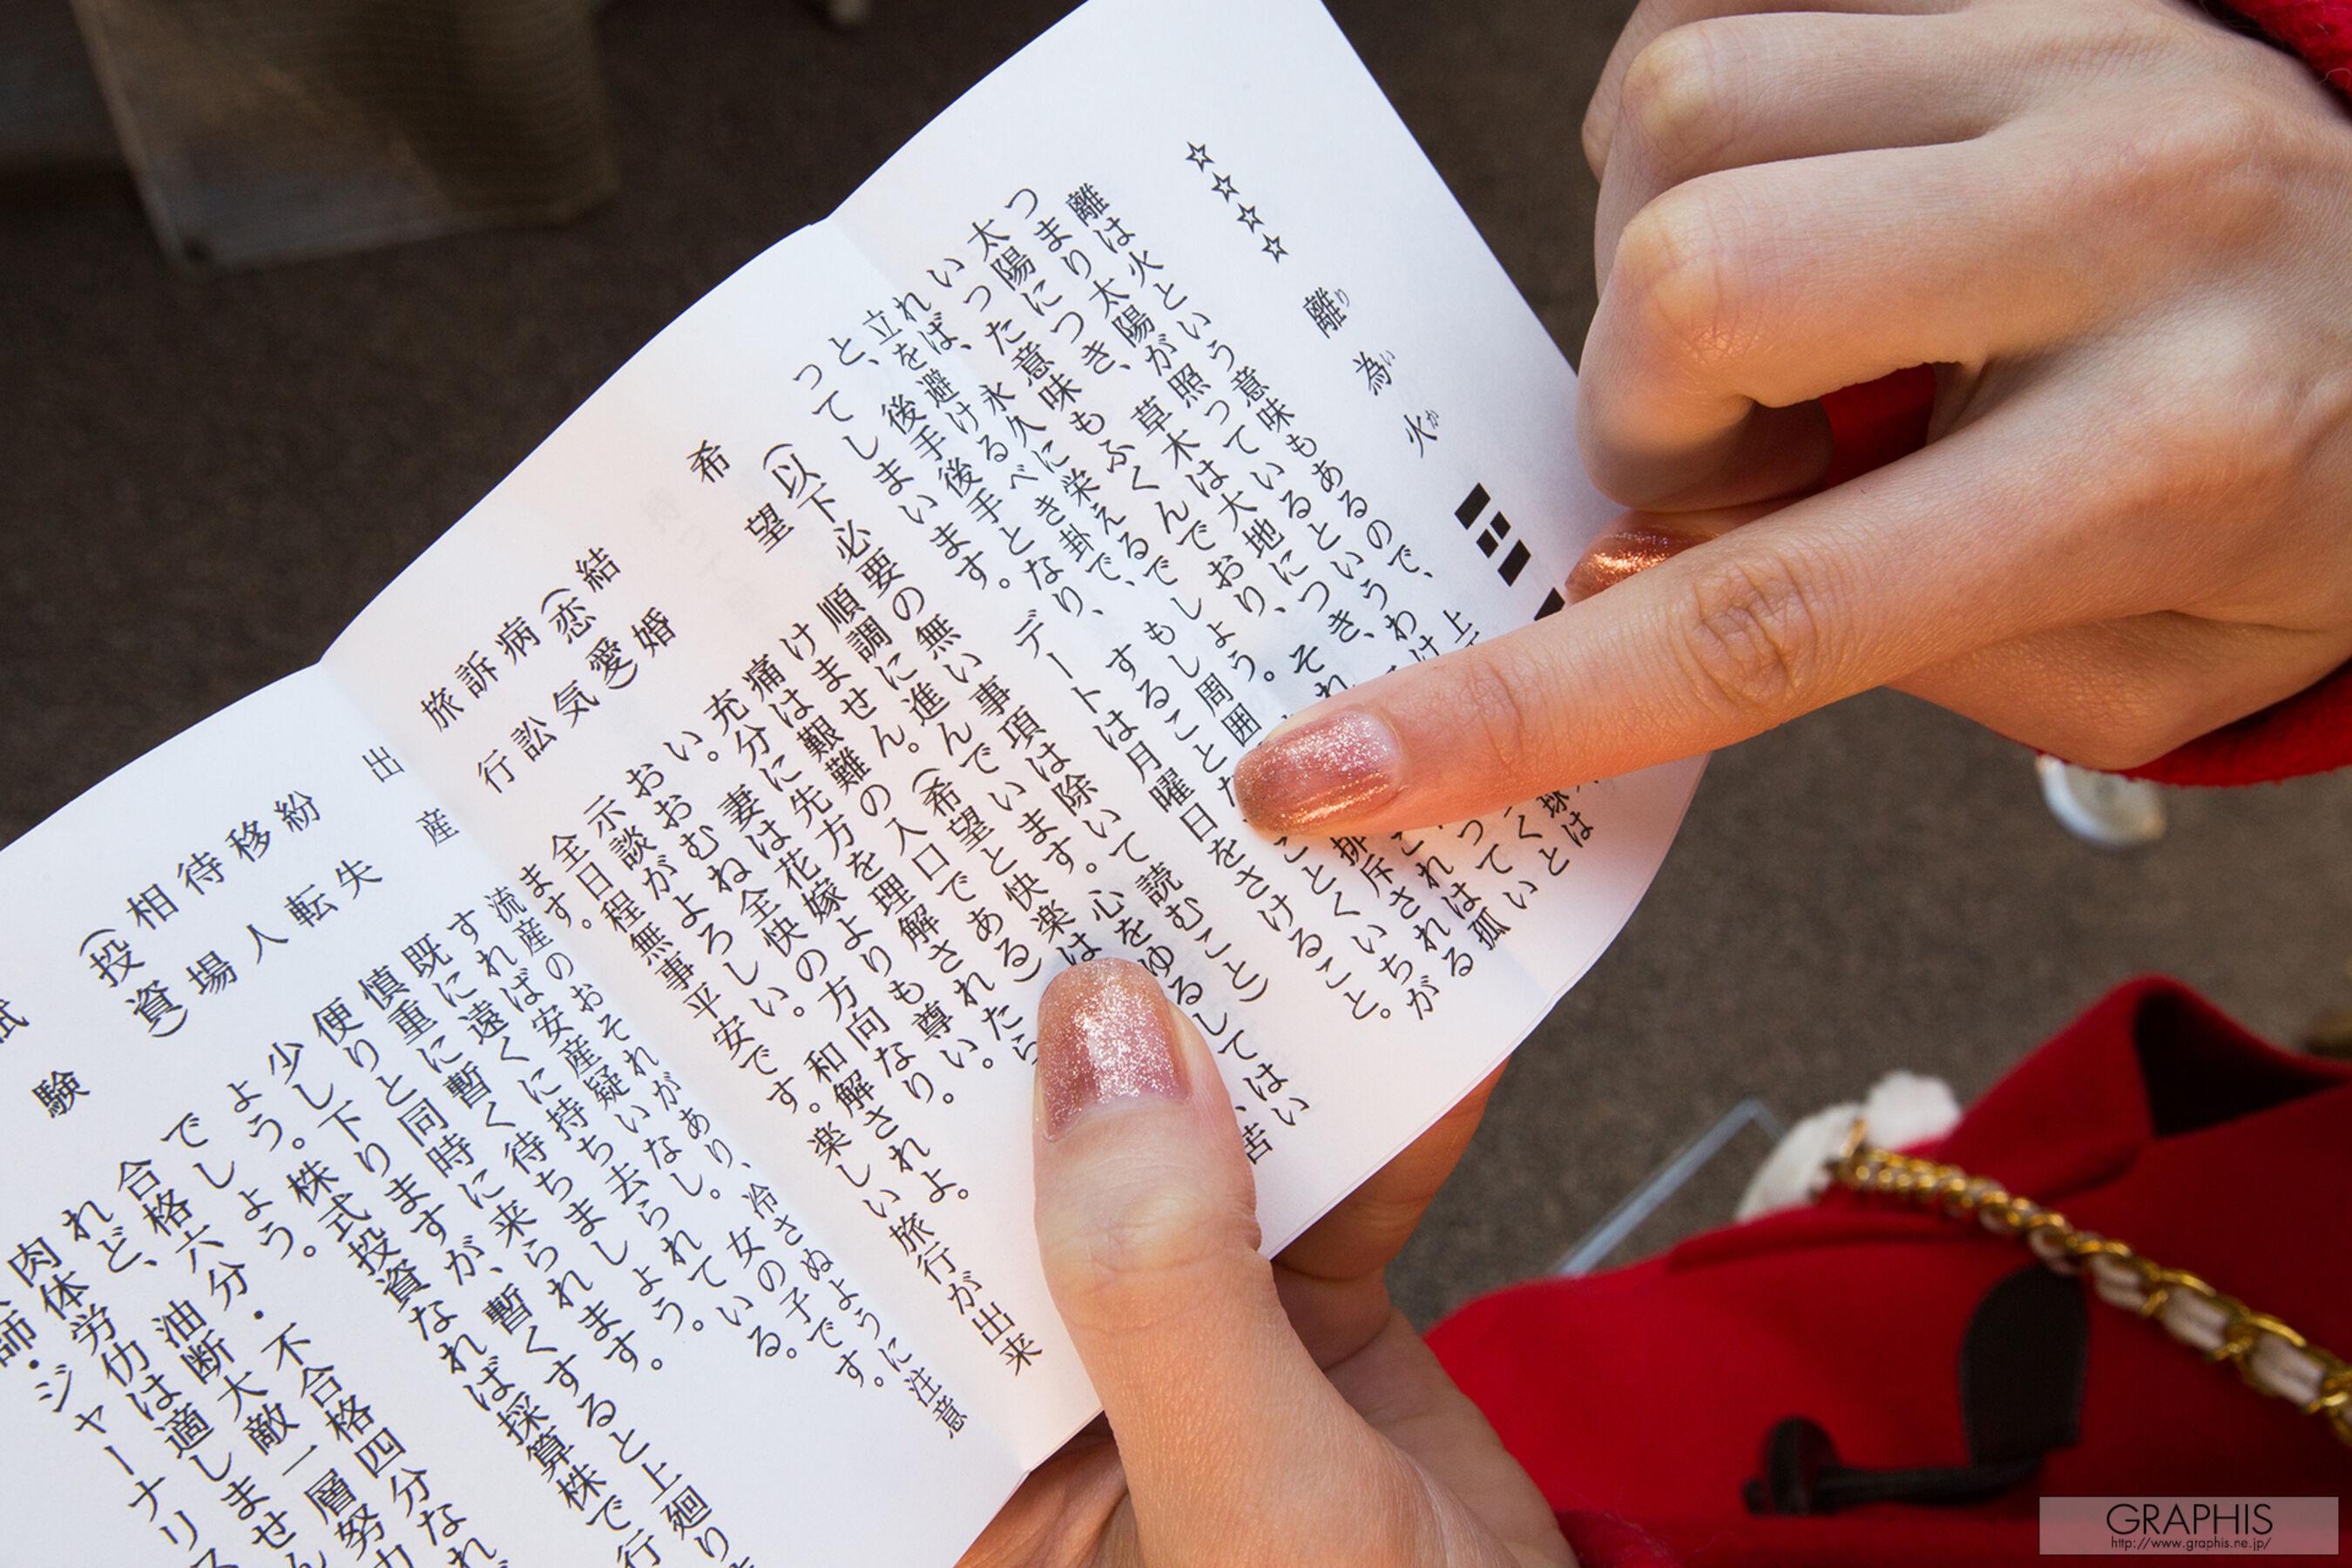 ☆☆☆☆ 離為火
り い か
離は火という意味もあるので、上
球は
つまり太陽が照っているというわけ
くいと
太陽につき、草木は大地につき、
いった意味もふくんでおり、それ
って孤
れば、永久に栄えるでしょう。
立を避けるべき卦で、もし周囲
排斥される
と、後手後手となり、すること
ことくいちが
ってしまいます。デートは月曜日をさけること。
(以下必要の無い事項は除いて読むこと)
希望 順調に進んでいます。心をゆるしてはい
けません。(希望と快楽は、苦
痛は艱難の入口である)
結婚(恋愛) 充分に先方を理解されたら
い。妻は花嫁よりも尊い。
病気 おおむね全快の方向なり。
訴訟 示談がよろしい。和解されよ。
旅行 全日程無事平安です。楽しい旅行が出来
ます。
出産 流産のおそれがあり、冷さぬように注意
すれば安産疑いなし。女の子です。
紛失 既に遠くに持ち去られている。
移転 慎重に暫く待ちましょう。
待人 便りと同時に来られます。
相場(投資) 少し下りますが、暫くすると上廻り
よう。株式投資なれば採算株で行
でしょう。
試験 合格六分・不合格四分なれ
れど、油断大敵一層努力
肉体労仂は適しません
師・ジャーナリス
GRAPHIS
http://www.graphis.ne.jp/